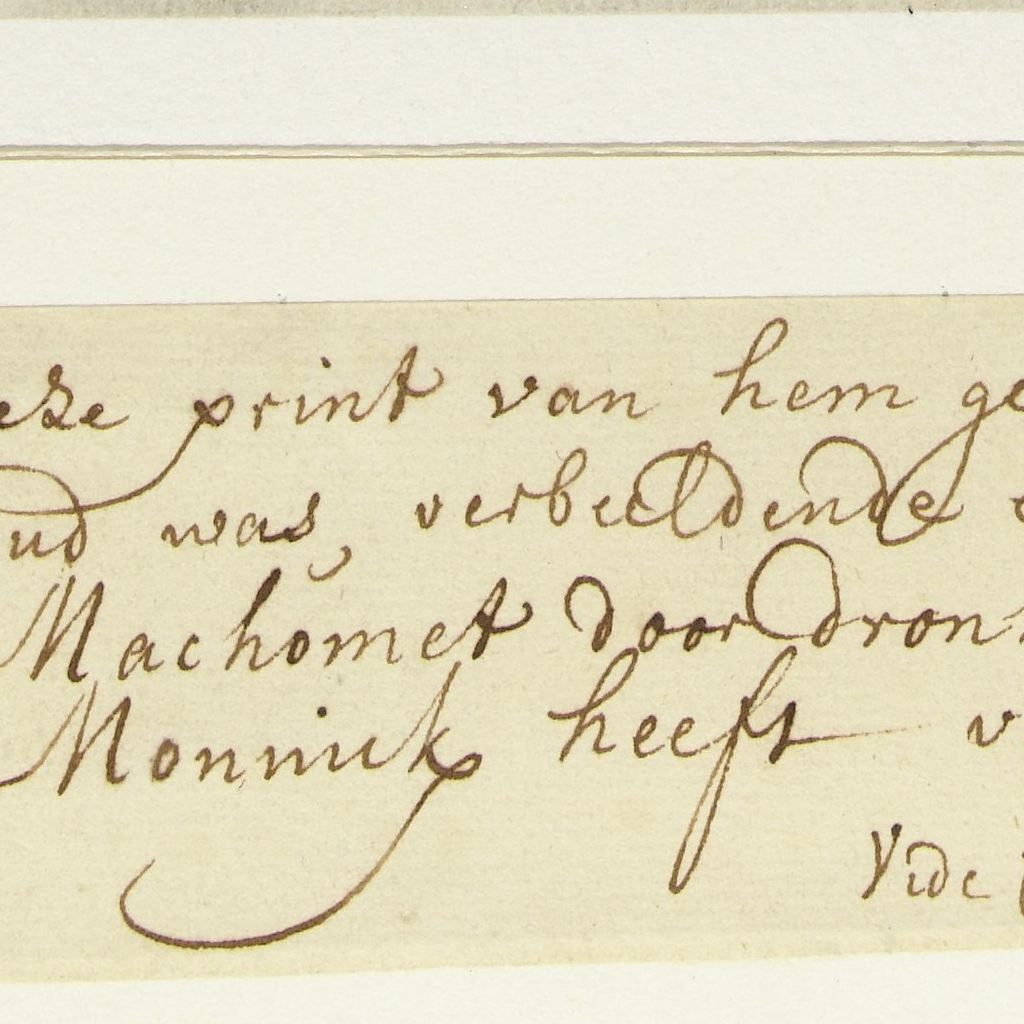 eze print van hem ge
ud was, verbeeldende
Machomet door dron
Monnick heeft v
Vide